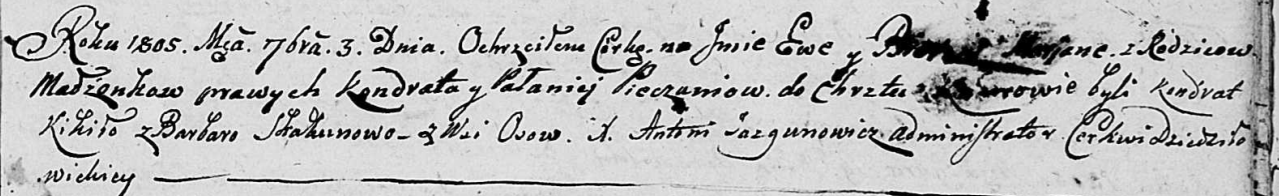 Roku 1805. Mca. 7bra. 3. Dnia. Ochrzciłem Corkę. na Jmie Ewe y Marjane. z Rodzicow
Małżonkow prawych Kondrata y Pałaniej Pieczaniow. do Chrztu byli Kondrat
Kikiło z Barbaro Skakunowo z Wsi Osow. X. Antoni Jazgunowicz administrator Cerkwi Dziedziło
wickiey